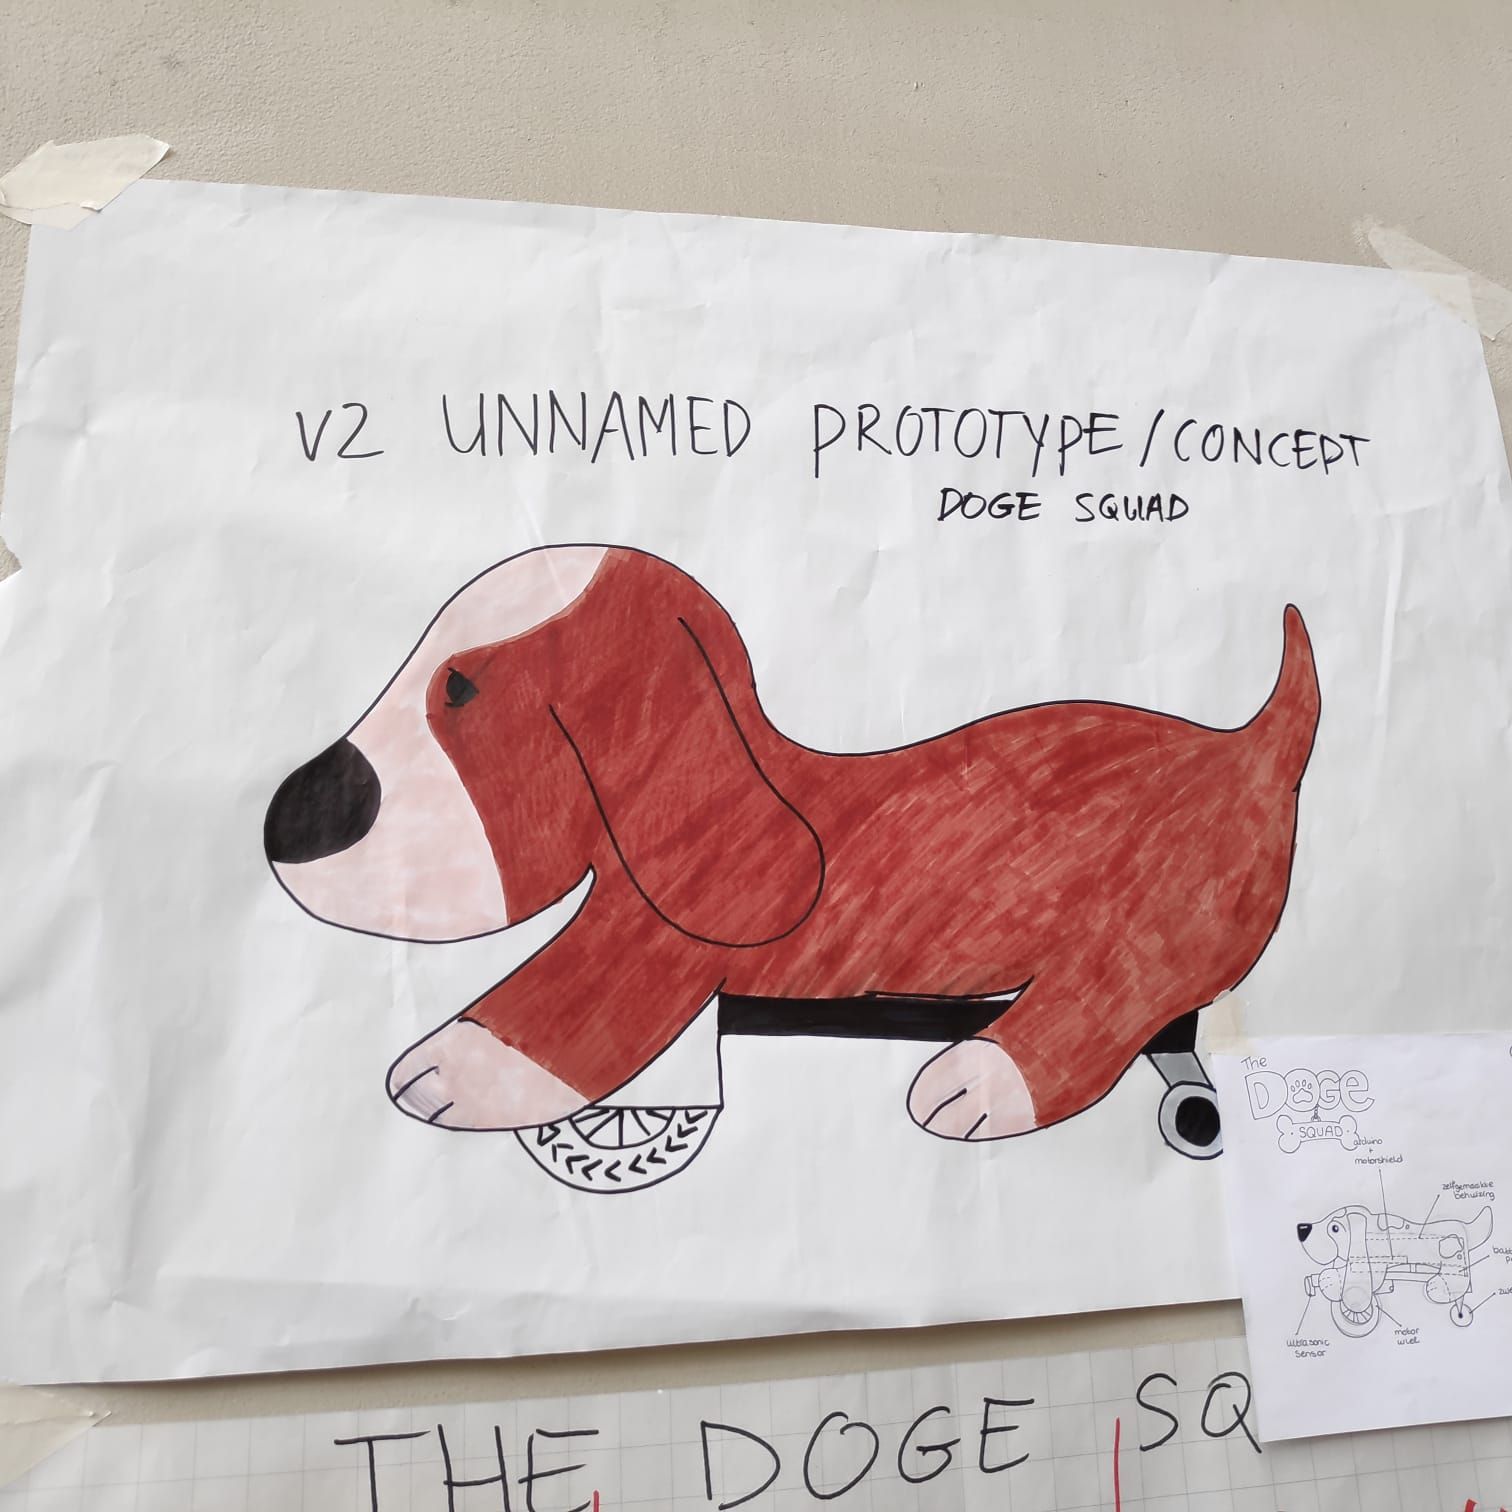 V2 UNNAMED PROTOTYPE/CONCEPT
DOGE SQUAD
The
DOGE
SQUAD
arduino
+
motorshield
zelfgemaakte
behuizing
ultrasonic
sensor
motor
wiel
THE DOGE SQ